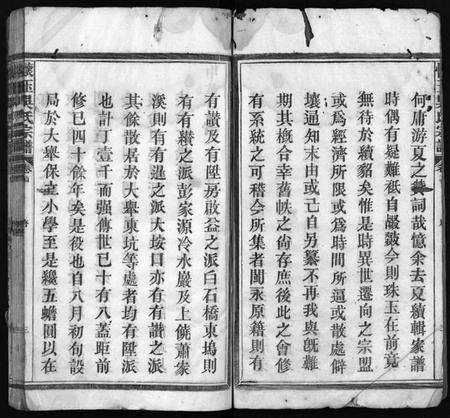 何庸游夏之贊詞哉憶余去夏續輯家譜
時偶有疑難祇自齪皺今則珠玉在前竟
無待於續貂矣惟是時異世遷向之宗盟
或爲經濟所限或爲時間所逼或散處僻
壤通知末由或己自另纂不再我與旣難
期其槪合幸舊帙之尙存庶後此之會修
有系統之可稽今所集者閩永原籍則有
有讚及有陞房啟益之派白石橋東塢則
有有續之派彭家源冷水嚴及上饒蕭家
溪則有有進之派大垵口亦有有讚之派
其餘散居於大舉東坑等處者均有陞派
也計丁壹千而強傳世已十有八蓋距前
修已四十餘年矣是役也自八月初旬設
局於大舉保立小學至是纔五蟾圓以在
吳氏宗譜